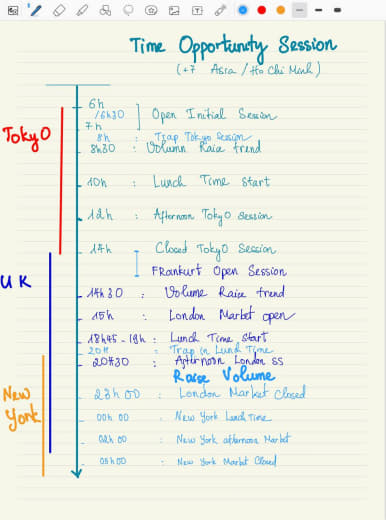 Time Opportunity Session
(+7 Asia / Ho Chi Minh)
6h
/6h30
7h
Open Initial Session
8h : Trap Tokyo Session
8h30 : Volumn Raise trend
TokyO
10h : Lunch Time start
12h : Afternoon TokyO Session
14h : Closed TokyO Session
FRankurt Open Session
UK
14h30 : Volume Raise trend
15h : London Market open
18h45 - 19h : Lunch Time start
20h : Trap in Lunch Time
20h30 : Afternoon London SS
Raise Volume
New York
23h00 : London Market Closed
00h00 : New York Lunch Time
02h00 : New York afternoon Market
05h00 : New York Market Closed